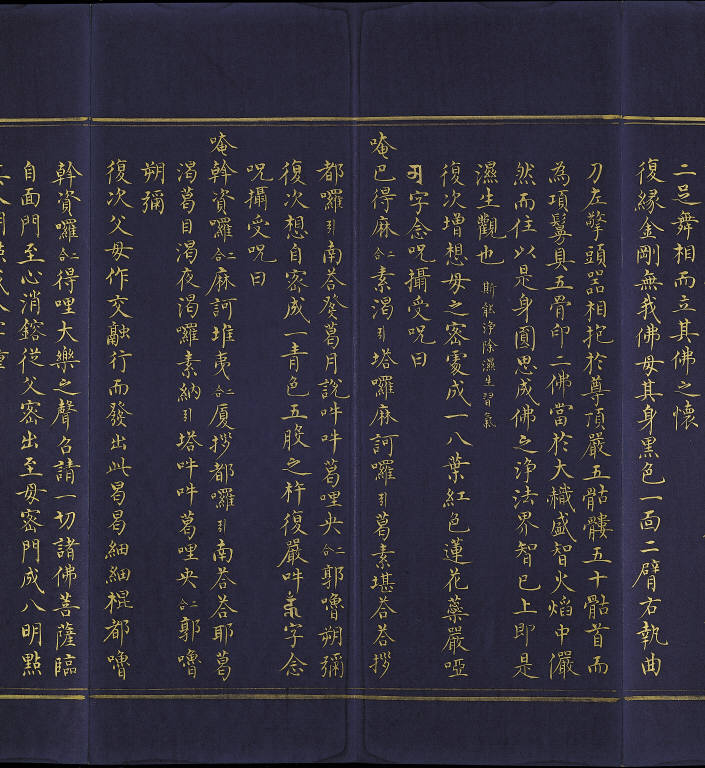 二足舞相而立其佛之懷
復緣金剛無我佛母其身黑色一面二臂右執曲
刀左擎頭器相抱於尊頂嚴五骷髏五十骷首而
為項鬘具五骨印二佛當於大熾盛智火焰中儼
然而住以是身圓思成佛之淨法界智已上即是
濕生觀也 斯能淨除濕生習氣
復次增想母之密處成一八葉紅色蓮花蘂嚴啞
字念呪攝受呪曰
唵巴得麻 二合 素渴 引 塔囉麻訶囉 引 葛素堪荅荅拶
都囉 引 南荅發葛月說吽吽葛哩央 二合 郭嚕朔彌
復次想自密成一青色五股之杵復嚴吽字念
呪攝受呪曰
唵斡資囉 二合 麻訶堆夷 二合 厦拶都囉 引 南荅荅耶葛
渴葛目渴夜渴囉素納 引 塔吽吽葛哩央 二合 郭嚕
朔彌
復次父母作交融行而發出此曷曷細細棍都嚕
斡資囉 二合 得哩大樂之聲召請一切諸佛菩薩臨
自面門至心消鎔從父密出至母密門成八明點